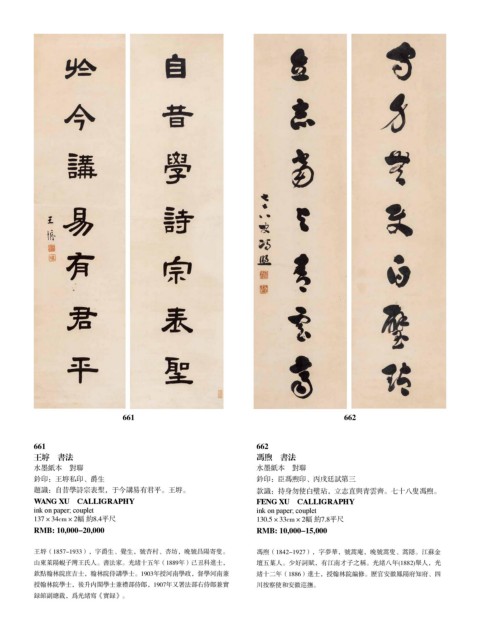 自昔學詩宗表聖
於今講易有君平
王垿
身無使白璧玷
立志當与青雲
七十八叟馮煦
661
662
661
王垿 書法
水墨紙本 對聯
鈐印：王垿私印、爵生
題識：自昔學詩宗表聖，于今講易有君平。王垿。
WANG XU CALLIGRAPHY
ink on paper; couplet
137 × 34cm × 2幅 約8.4平尺
RMB: 10,000–20,000
王垿（1857–1933），字爵生、覺生，號杏村、杏坊，晚號昌陽寄叟。
山東萊陽蜆子灣王氏人。書法家。光緒十五年（1889年）已丑科進士，
欽點翰林院庶吉士，翰林院侍講學士。1903年授河南學政，督學河南兼
授翰林院學士，後升內閣學士兼禮部侍郎，1907年又署法部右侍郎兼實
錄館副總裁。爲光緒寫《實錄》。
662
馮煦 書法
水墨紙本 對聯
鈐印：臣馮煦印、丙戌廷試第三
款識：持身勿使白璧玷，立志直與青雲齊。七十八叟馮煦。
FENG XU CALLIGRAPHY
ink on paper; couplet
130.5 × 33cm × 2幅 約7.8平尺
RMB: 10,000–15,000
馮煦（1842–1927），字夢華，號蒿庵，晚號蒿叟、蒿隱。江蘇金
壇五葉人。少好詞賦，有江南才子之稱。光緒八年(1882)舉人，光
緒十二年（1886）進士，授翰林院編修。歷官安徽鳳陽府知府、四
川按察使和安徽巡撫。